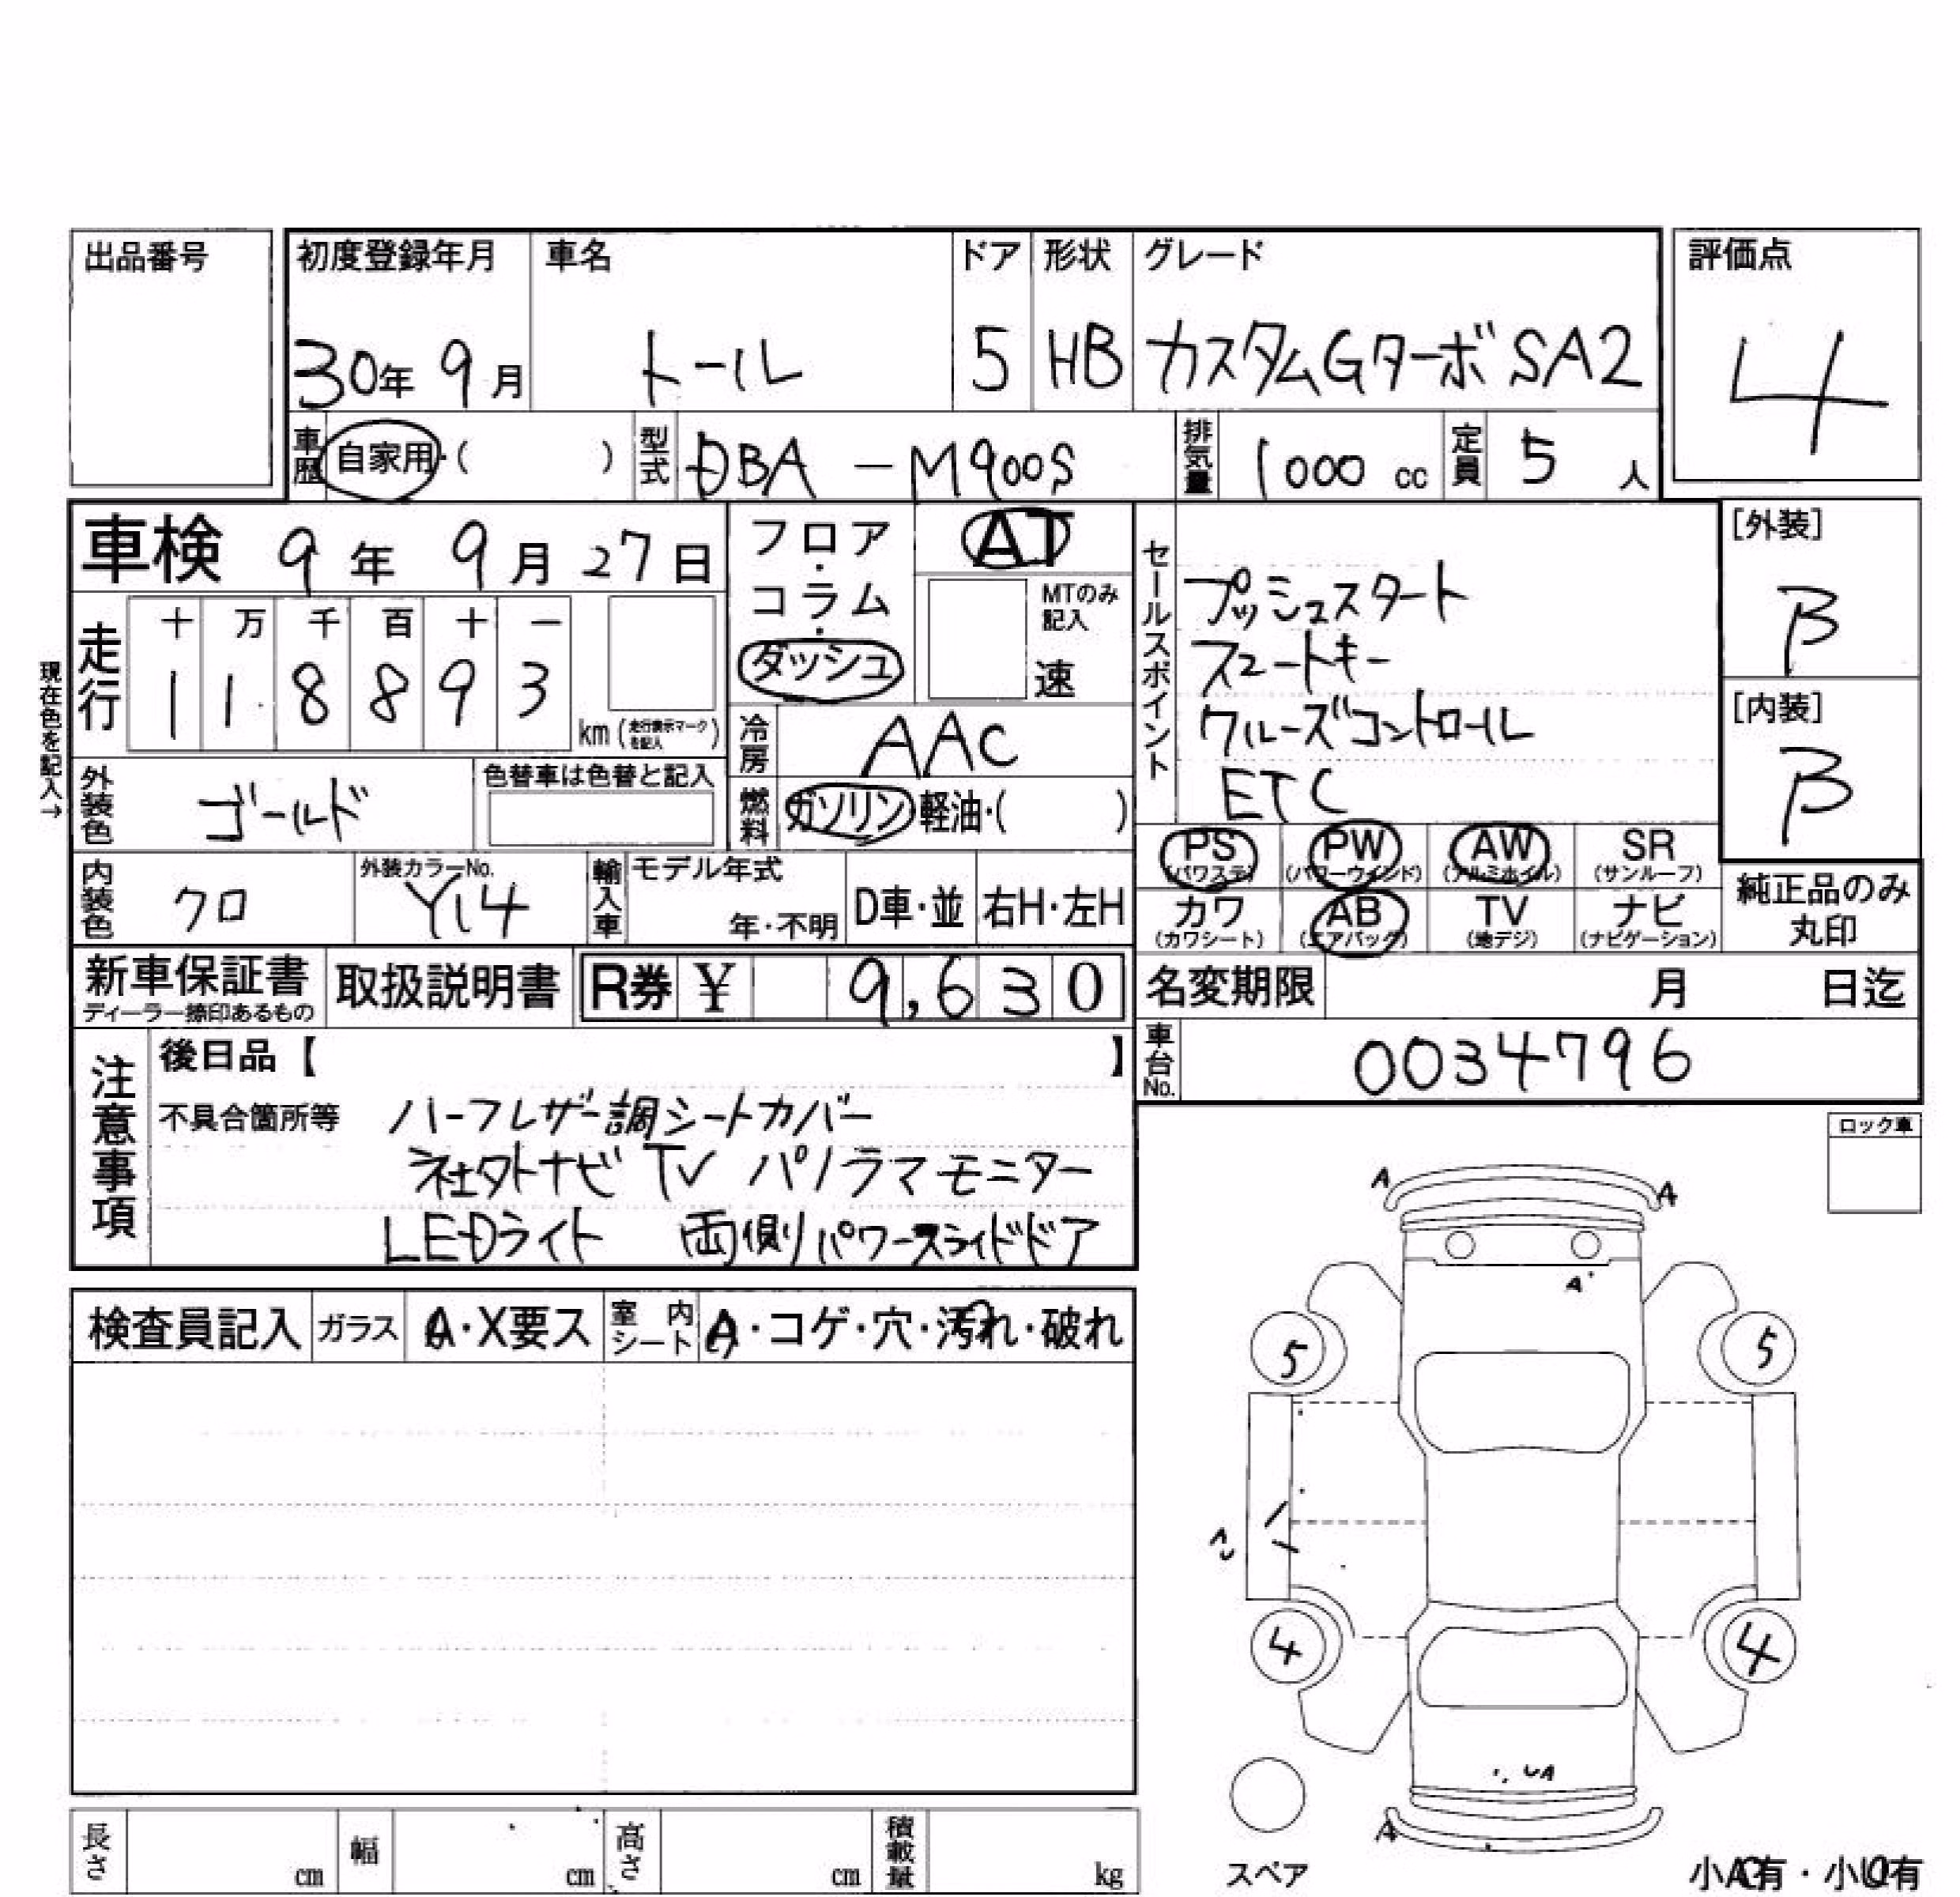 出品番号
初度登録年月 車名 ドア 形状 グレード 評価点
30年 9月 トール 5 HB カスタムGターボSA2 4
車歴 自家用・( ) 型式 DBA-M900S 排気量 1000 cc 定員 5 人
車検 9年 9月 27日
フロア・コラム・ダッシュ
AT
MTのみ記入
速
セールスポイント
プッシュスタート
スマートキー
クルーズコントロール
ETC
[外装]
B
[内装]
B
現在色を記入→
走行 十 万 千 百 十 一
1 1 8 8 9 3
km (走行表示マークを記入)
冷房 AAC
外装色 ゴールド 色替車は色替と記入
燃料 ガソリン・軽油・( )
PS (パワステ) PW (パワーウインド) AW (アルミホイル) SR (サンルーフ)
カワ (カワシート) AB (エアバッグ) TV (地デジ) ナビ (ナビゲーション)
純正品のみ
丸印
内装色 クロ 外装カラーNo. Y14 輸入車 モデル年式 年・不明 D車・並 右H・左H
新車保証書 ディーラー捺印あるもの 取扱説明書 R券 ¥ 9,630
名変期限 月 日迄
車台No. 0034796
注意事項
後日品【 】
不具合箇所等 ハーフレザー調シートカバー
社外ナビ TV パノラマモニター
LEDライト 両側パワースライドドア
ロック車
検査員記入 ガラス A・X要ス 室内シート A・コゲ・穴・汚れ・破れ
A A
A
5 5
4 4
UA
A
スペア
長さ cm 幅 cm 高さ cm 積載量 kg
小A有・小U有